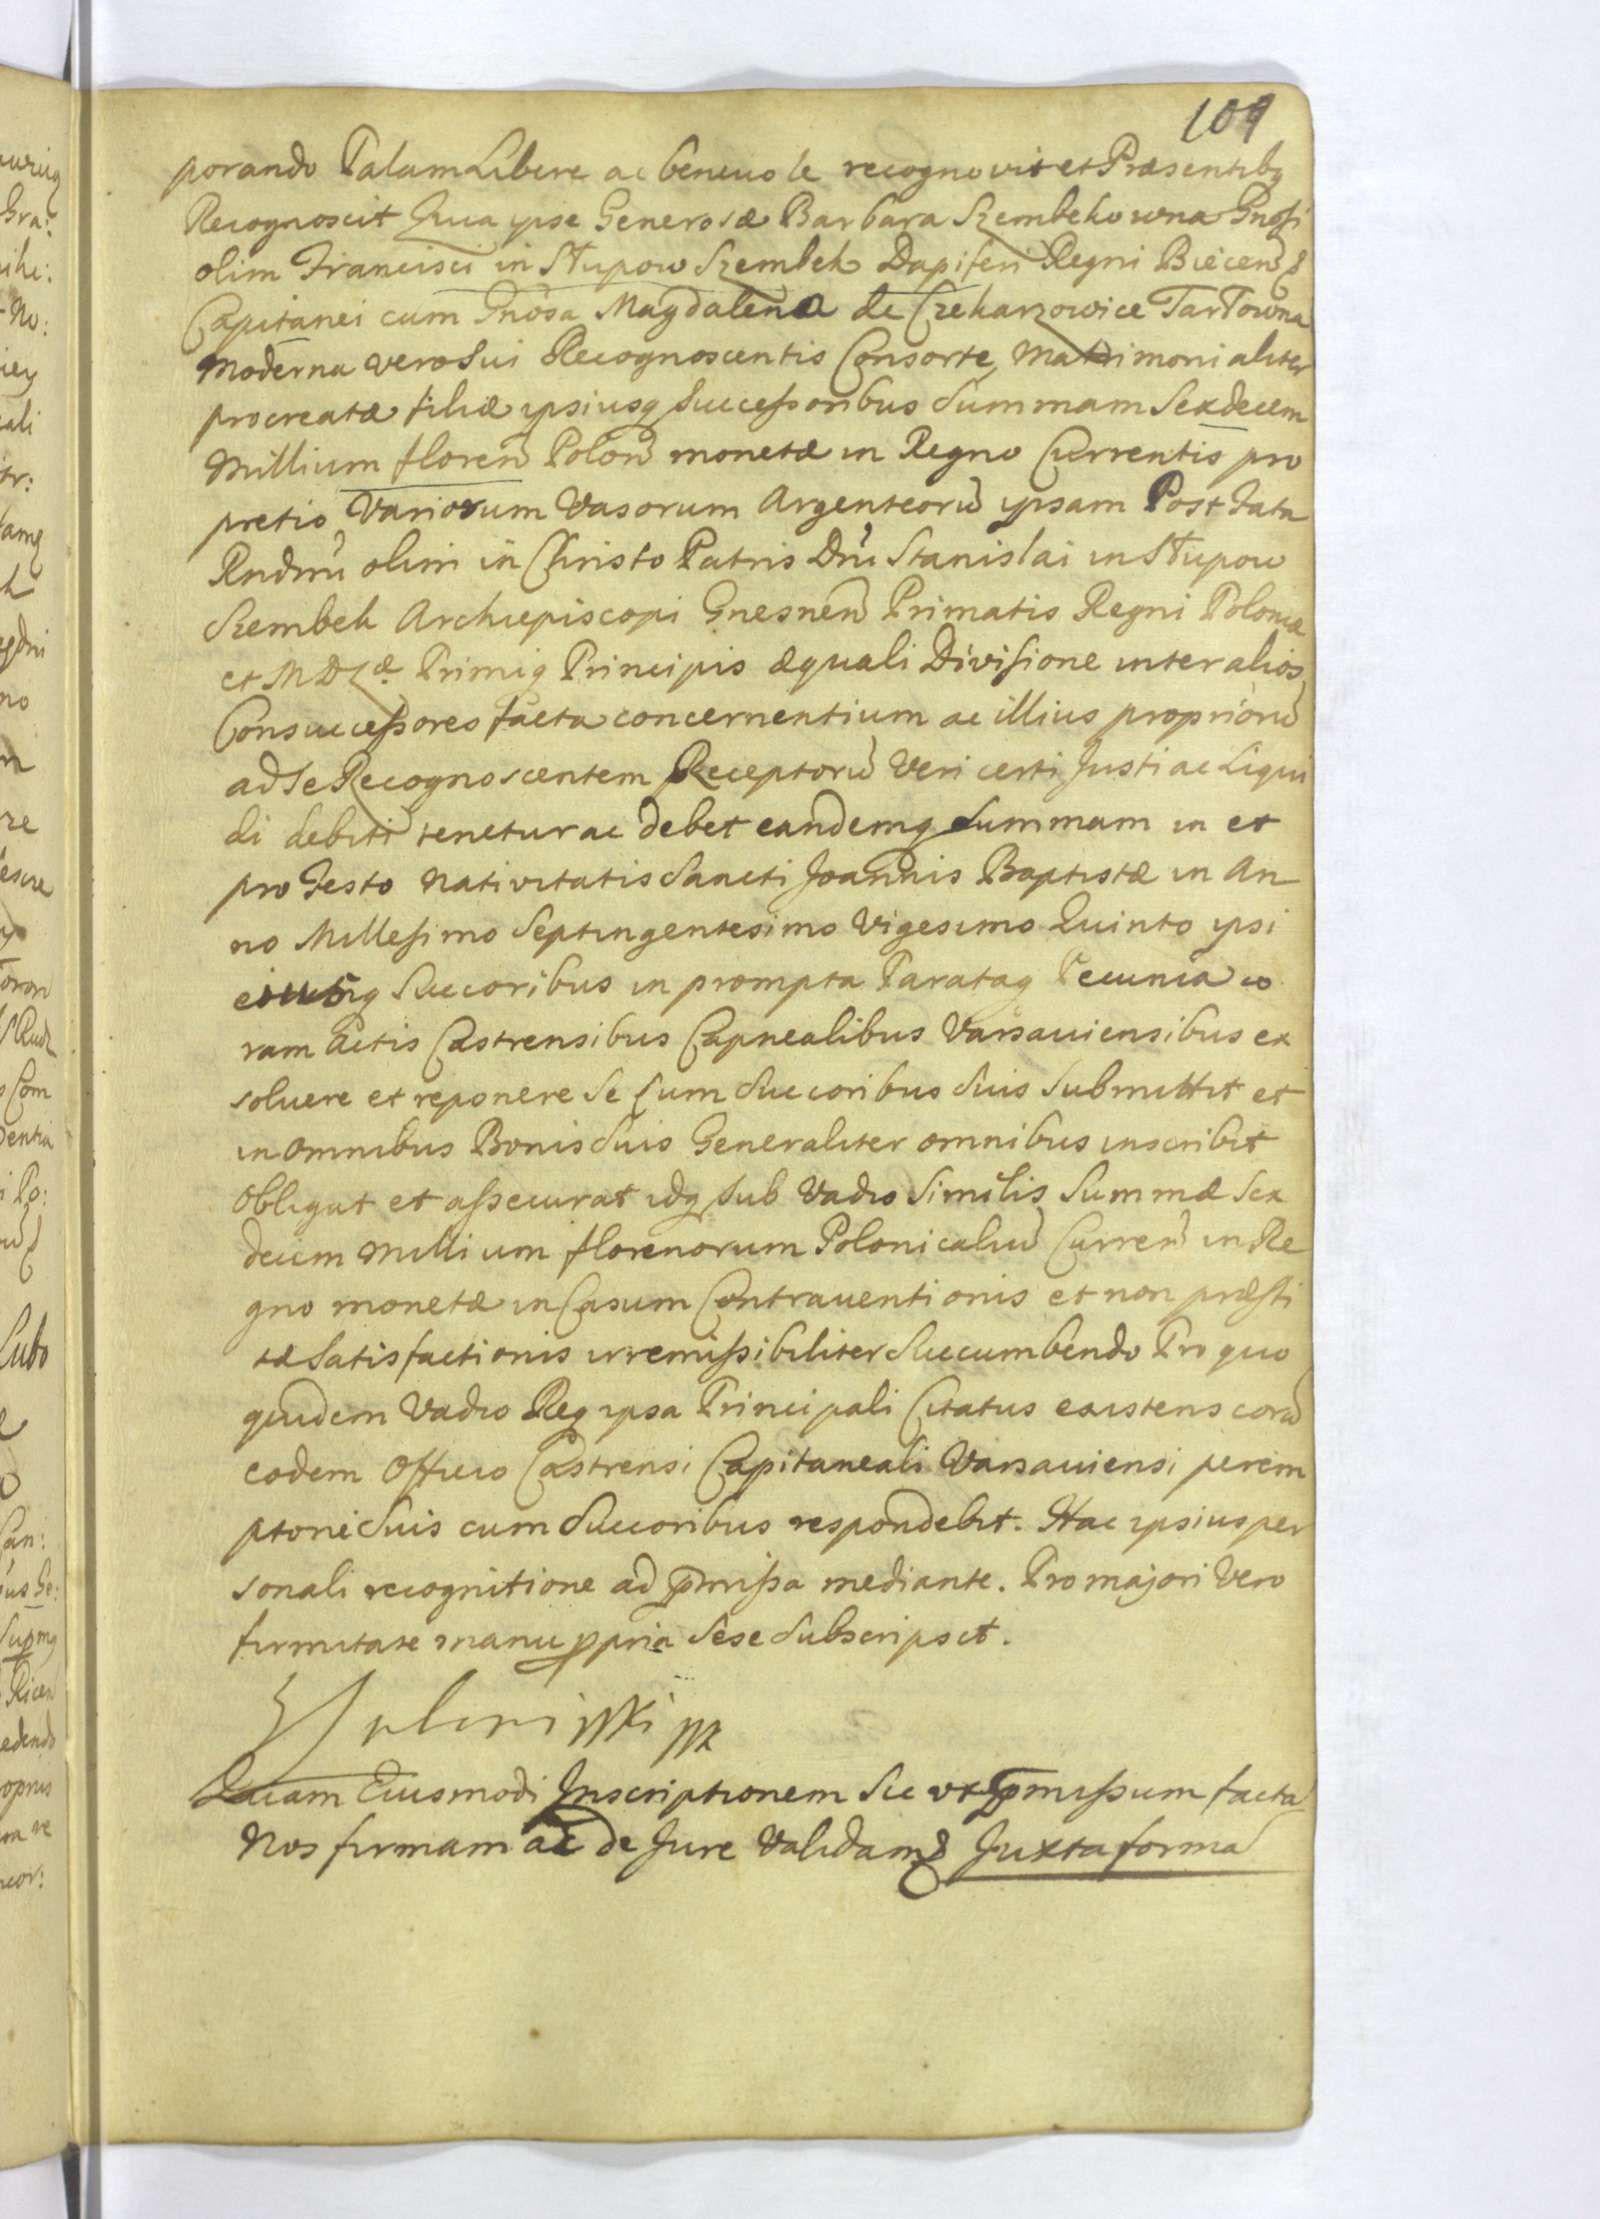 109
porando Palam Libere ac beneuole recognovit et Præsentibq
Recognoscit Quia ipse Generosæ Barbara Szembekowna Gnosi
olim Francisci in Słupow Szembek Dapiferi Regni Biecen̄
Capitanei cum Gnosa Magdalena de Czekarzowice Tarłowna
moderna vero sui Recognoscentis Consorte matrimonialiter
procreatæ filiæ ipsiusq successoribus Summam Sexdecem
Millium floren̄ Polon̄ monetæ in Regno Currentis pro
pretio Variorum Vasorum Argenteorū ipsam Post Fata
Rndmi olim in Christo Patris Dni Stanislai in Słupow
Szembek Archiepiscopi Gnesnen̄ Primatis Regni Poloniæ
et M D L æ Primiq Principis æquali Divisione inter alios
Consuccessores facta concernentium ac illius propriorū
ad se Recognoscentem Receptorū Veri certi Justi ac Liqui
di debiti tenetur ac debet eandemq summam in et
pro Festo Nativitatis Sancti Joannis Baptistæ in An
no Millesimo Septingentesimo Vigesimo Quinto ipsi
eiusq Succoribus in prompta Parataq Pecunia co
ram Actis Castrensibus Capnealibus Varsauiensibus ex
soluere et reponere se cum Succoribus suis submittit et
in omnibus Bonis suis Generaliter omnibus inscribit
obligat et assecurat idq sub Vadio similis Summæ Sex
decem millium florenorum Polonicaliū Curren̄ in Re
gno monetæ in Casum Contrauentionis et non præsti
tæ Satisfactionis irremissibiliter Succumbendo Pro quo
quidem Vadio Req ipsa Principali Citatus existens corā
eodem Officio Castrensi Capitaneali Varsauiensi perem
ptorie suis cum Succoribus respondebit. Hac ipsius per
sonali recognitione ad p̄missa mediante. Pro majori Vero
firmitate manu ppria sese subscripsit.
Quam Eiusmodi Inscriptionem sic ut p̄missum facta
Nos firmam ac de Jure Validam Juxta forma